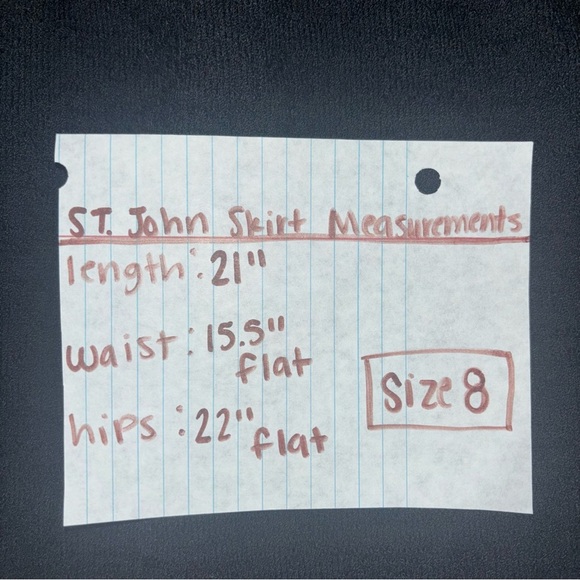 ST. John Skirt Measurements
length: 21"
waist: 15.5"
flat
hips: 22"
flat
Size 8